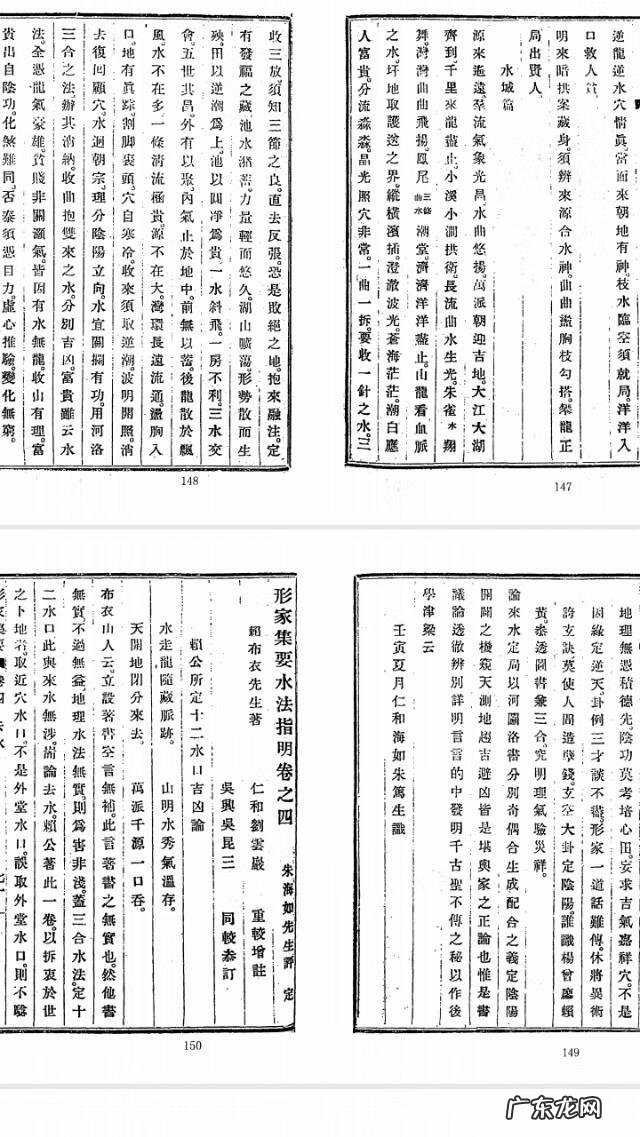 逆龍逆水穴情眞。當面來朝地有神。枝水臨空須就局。洋洋入
口救人貧。
明來暗拱案藏身。須辨來源合水神。曲曲濫胸枝勾搭。槃龍正
局出賢人。
水城篇
源來迤遠。羣流氣象光昌。水曲悠揚。萬派朝迎吉地。大江大湖
齊到。千里來龍盡止。小溪小澗。拱衛長流。曲水生光。朱雀*翔
舞。灣灣曲曲飛揚。鳳尾三條曲水潮堂。濟濟洋洋盡止。山龍看血脈
之水。坪地取護送之界。縱橫濱插。澄澈波光。蒼海茫茫。潮白應
人富貴。分流淼淼。晶光照穴非常。一曲一拆。要收一針之水。三
147
收三放。須知三節之良。直去反張。恐是敗絕之地。抱來融注。定
有發福之藏。池水猶善。力量輕而悠久。湖山曠蕩。形勢散而生
殃。田以逆潮爲上。池以圓淨爲貴。一水斜飛。一房不利。三水交
會。五世其昌。外有以聚。內氣止於地中。前無以蓄。後龍散於飄
風。水不在多。一條清流極貴。源不在大。灣環長遠流通。盪胸入
口。地有眞踪。割脚裹頭。穴自寒冷。收來須取逆潮。波明開照。消
去復回顧穴。水迴朝宗。理分陰陽立向。水宜關攔有功。用河洛
三合之法。辦其消納。收曲抱雙來之水。分別吉凶。富貴雖云水
法。全憑龍氣豪雄。貧賤非關灝氣。皆因有水無龍。收山有理。富
貴出自陰功。化煞難同。否泰須憑目力。虛心推驗。變化無窮。
148
地理無憑積德先。陰功莫考培心田。妄求吉氣嘉祥穴。不是
因緣定逆天。卦例三才談不盡。形家一道話難傳。休將異術
誇玄訣。莫使人間造孽錢。玄空大卦定陰陽。誰識楊曾廖賴
黃。泰透圖書兼三合。究明理氣驗災祥。
論來水定局以河圖洛書分別奇偶合生成配合之義定陰陽
開闢之機窺天測地趨吉避凶皆是堪輿家之正論也惟是書
議論透徹辨別詳明言言的中發明千古聖不傳之秘以作後
學津梁云
壬寅夏月仁和海如朱篤生識
149
形家集要水法指明卷之四
朱海如先生評定
賴布衣先生著
仁和劉雲巖 重較增註
吳興吳昆三 同較叅訂
賴公所定十二水口吉凶論
水走龍隨藏脈跡。 山明水秀氣溫存。
天開地閉分來去。 萬派千源一口吞。
布衣山人云。立說著書。空言無補。此言著書之無實也。然他書
無實。不過無益。地理水法無實。則爲害非淺。蓋三合水法。定十
二水口。此與來水無涉。耑論去水。賴公著此一卷。以拆衷於世
之卜地者。取近穴水口。不是外堂水口。誤取外堂水口。則不驗
150
广东龙网